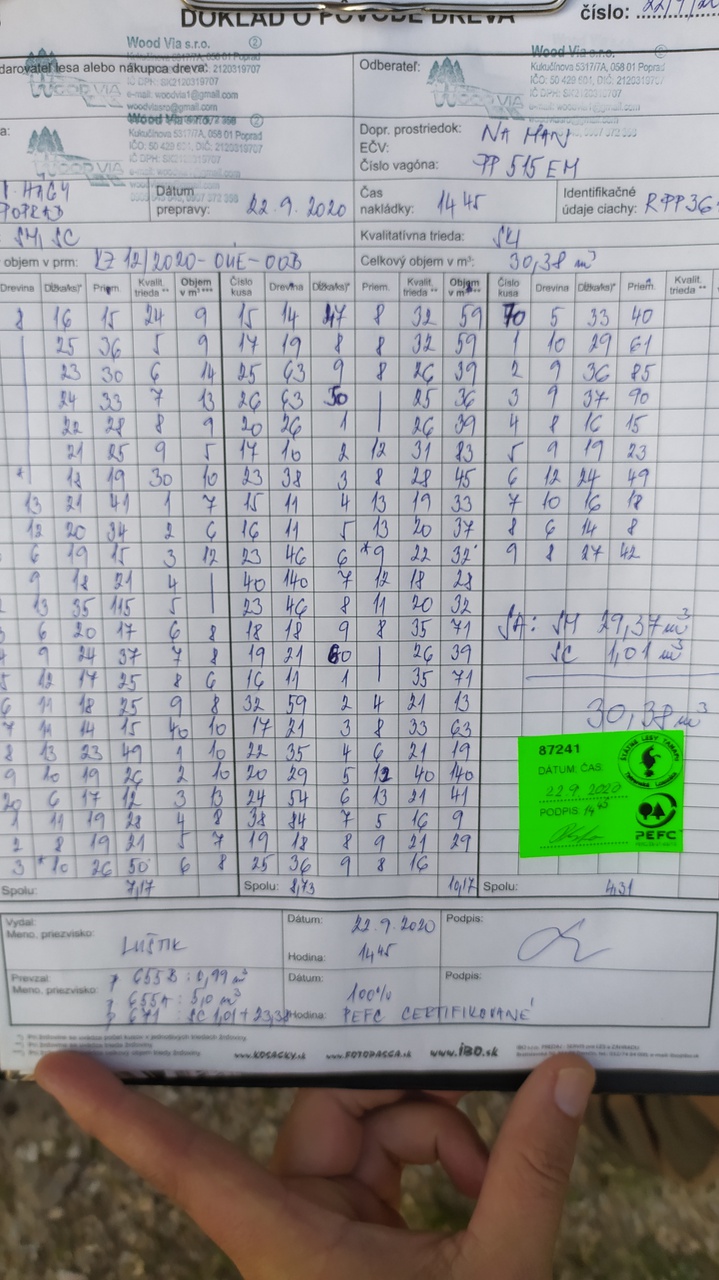 DOKLAD O PÔVODE DREVA
číslo:
Wood Via s.r.o. ②
Kukučínova 5317/7A, 058 01 Poprad
darovateľ lesa alebo nákupca dreva:
2120319707
IČ DPH: SK2120319707
e-mail: woodvia1@gmail.com
Odberateľ:
Wood Via s.r.o. ②
Kukučínova 5317/7A, 058 01 Poprad
IČO: 50 429 691, DIČ: 2120319707
IČ DPH: SK2120319707
e-mail: woodvia1@gmail.com
Wood Via s.r.o. ②
Kukučínova 5317/7A, 058 01 Poprad
DIČ: 2120319707
IČ DPH: SK2120319707
WOOD VIA
Dopr. prostriedok: NA MAN
EČV:
Číslo vagóna: PP 515 EM
POPRAD
Dátum prepravy: 22.9.2020
Čas nakládky: 14 45
Identifikačné údaje ciachy: RPP36
SM, SC
Kvalitatívna trieda:
objem v prm:
Celkový objem v m³: 30,38 m³
Drevina Dĺžka(s)* Priem. Kvalit. trieda ** Objem v m³ *** Číslo kusa Drevina Dĺžka(s)* Priem. Kvalit. trieda ** Objem v m³ *** Číslo kusa Drevina Dĺžka(s)* Priem. Kvalit. trieda **
8 16 15 24 9 15 14 47 8 32 59 70 5 33 40
25 36 5 9 17 19 8 8 32 59 1 10 29 61
23 30 6 14 25 63 9 8 26 39 2 9 36 85
24 33 7 13 26 63 50 | 25 36 3 9 37 90
22 28 8 9 20 26 1 | 26 39 4 8 16 15
21 25 9 5 17 10 2 12 31 83 5 9 19 23
* 18 19 30 10 23 38 3 8 28 45 6 12 24 49
13 21 41 1 7 15 11 4 13 19 33 7 10 16 18
12 20 34 2 6 16 11 5 13 20 37 8 6 14 8
6 19 15 3 12 23 46 6 *9 22 32 9 8 27 42
9 18 21 4 | 40 140 7 12 18 28
13 35 115 5 | 23 46 8 11 20 32
6 20 17 6 8 18 18 9 8 35 71
9 24 37 7 8 19 21 60 | 26 39
12 17 25 8 6 16 11 1 | 35 71
11 18 25 9 8 32 59 2 4 21 13
7 11 14 15 40 10 17 21 3 8 33 63
8 13 23 49 1 10 22 35 4 6 21 19
9 10 19 26 2 10 20 29 5 12 40 140
20 6 17 12 3 13 24 54 6 13 21 41
1 11 19 28 4 8 38 84 7 5 16 9
2 8 19 21 5 7 19 18 8 9 21 29
3 *10 26 50 6 8 25 36 9 8 16
SM 29,37 m³
SC 1,01 m³
30,38 m³
87241
DÁTUM, ČAS:
22.9.2020
PODPIS: 14 45
ŠTÁTNE LESY TANAPu
PEFC
Spolu: 7,17 Spolu: 8,73 10,17 Spolu: 4,31
Vydal:
Meno, priezvisko: LUŠTIK
Dátum: 22.9.2020
Hodina: 14 45
Podpis:
Prevzal:
Meno, priezvisko:
655B : 0,99 m³
655A : 5,0 m³
SC 1,01 +
Dátum: 100%
Hodina: PEFC CERTIFIKOVANÉ
Podpis:
www.KOSACKY.sk www.FOTOPASCA.sk www.iBO.sk